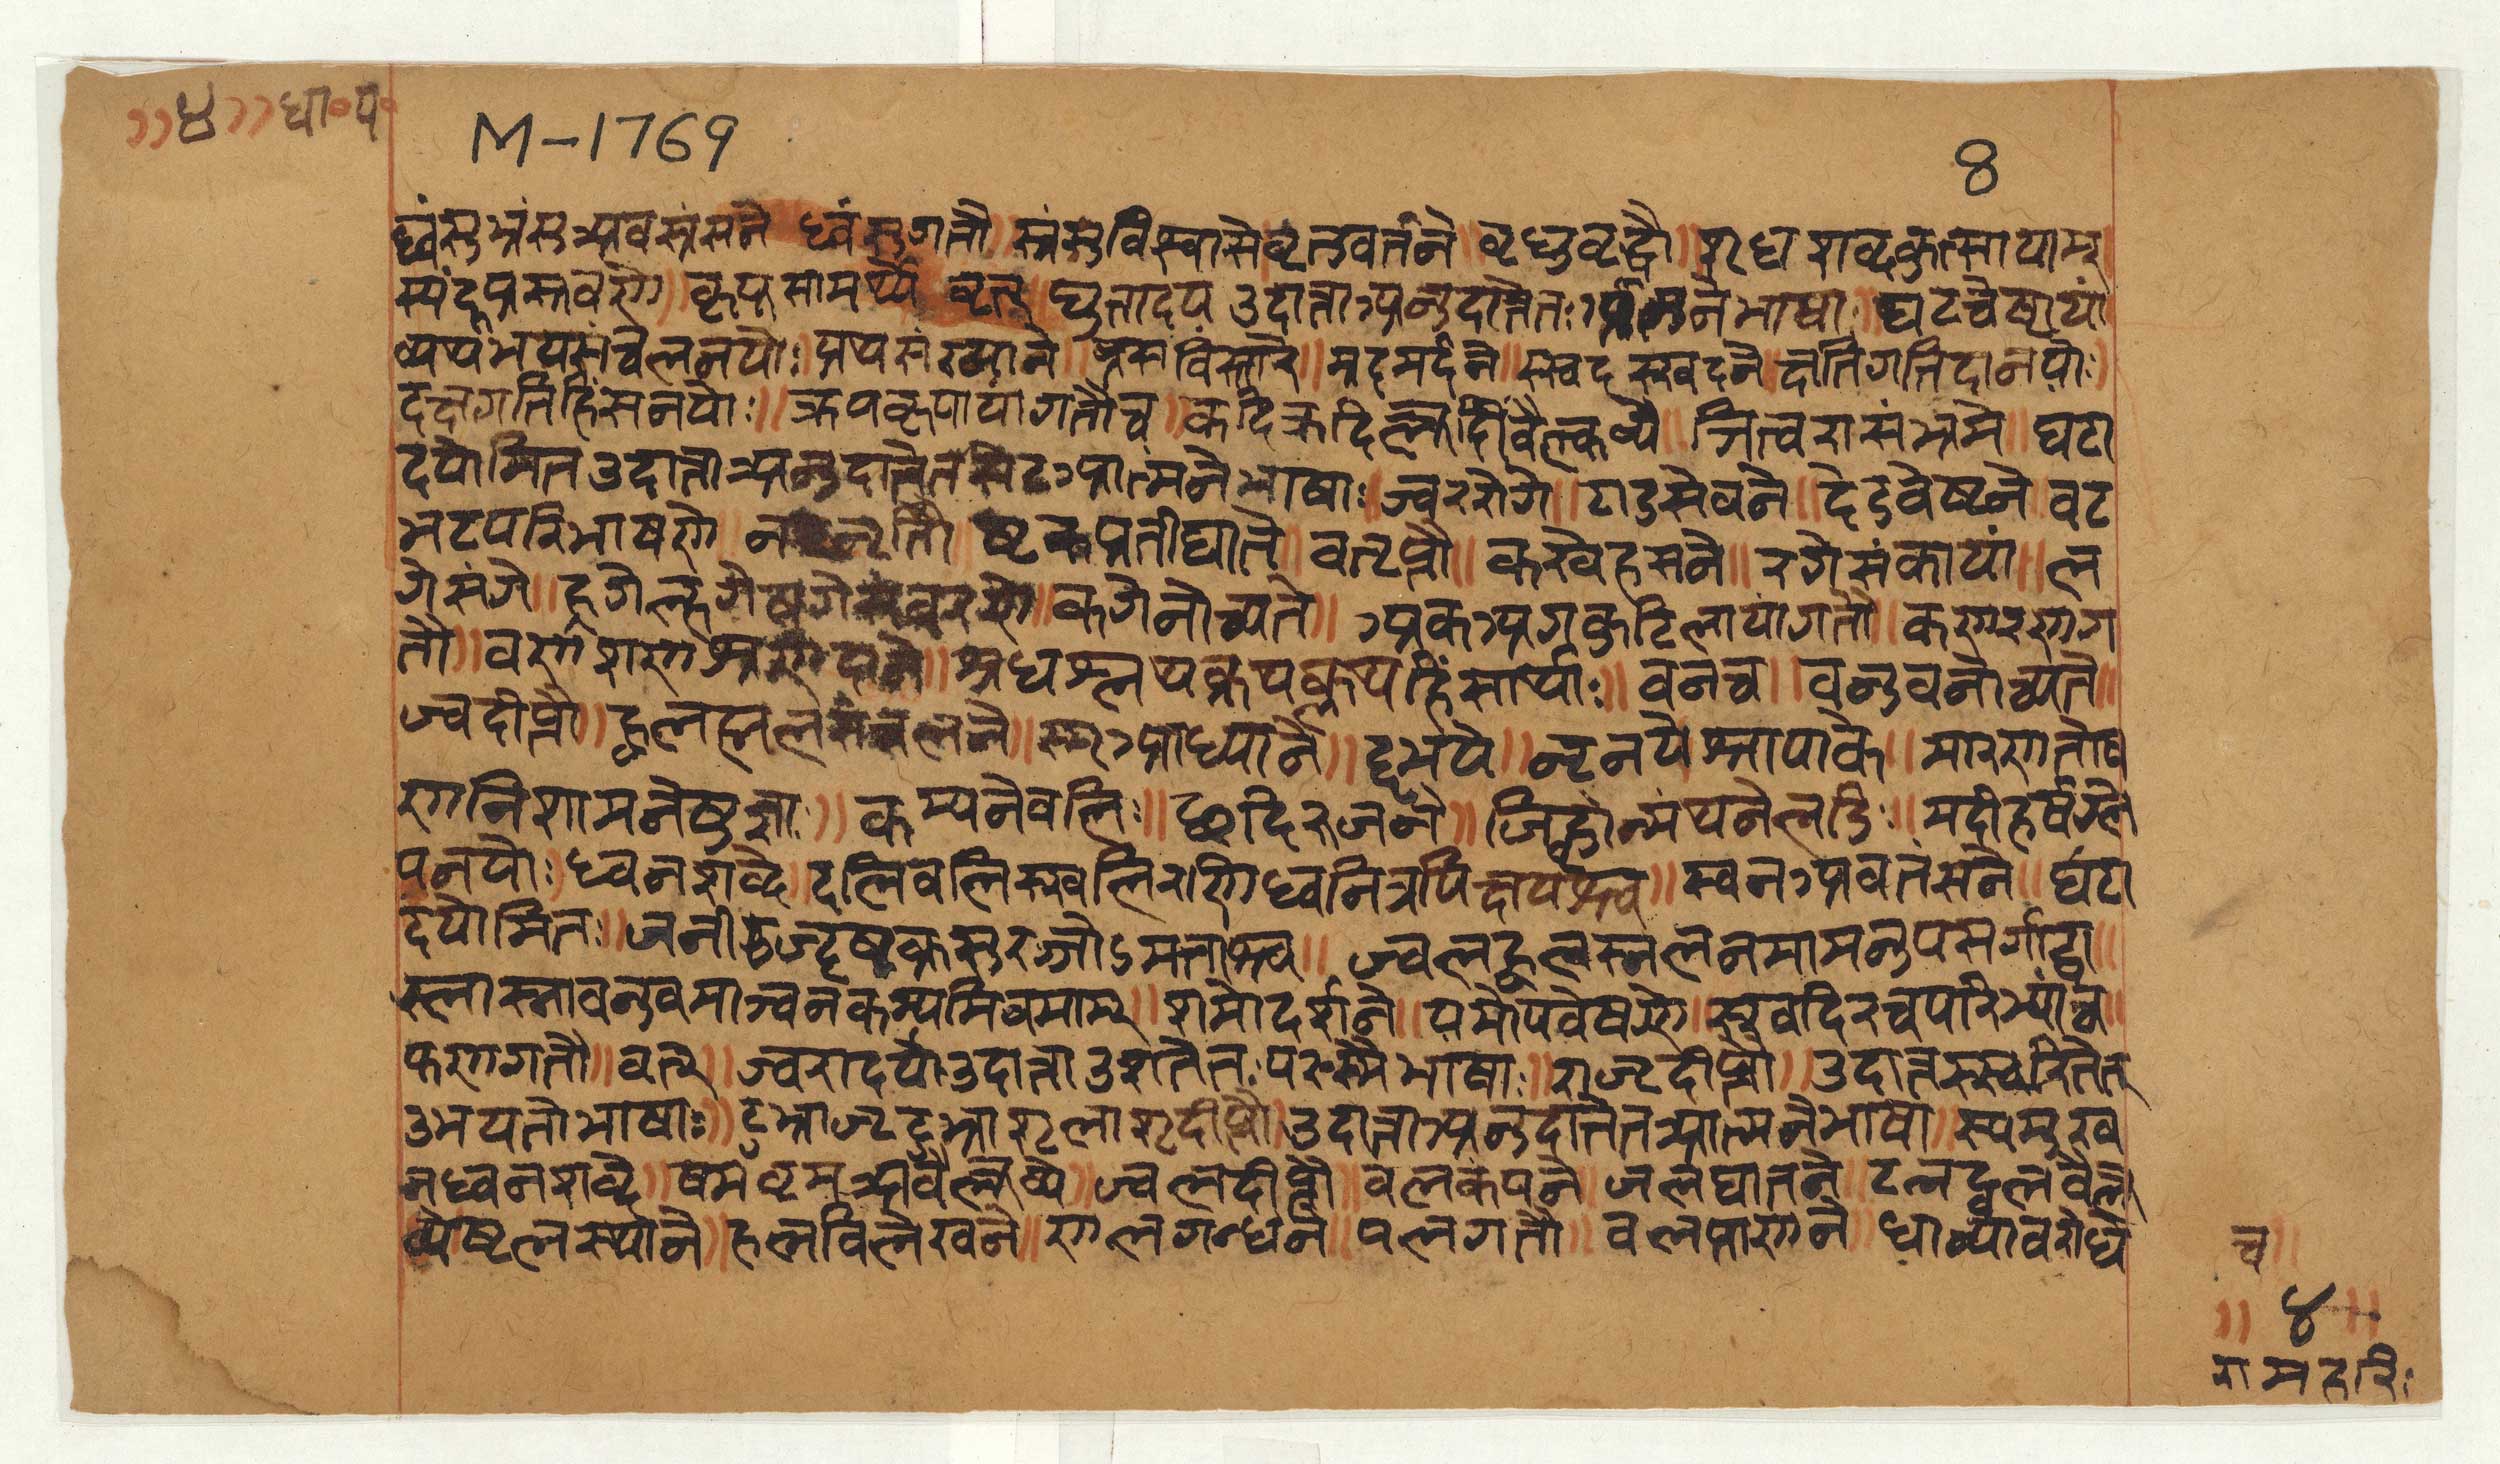 ॥४॥ धा॰प॰
M-1769
8
ध्वंसुभ्रंसुअवस्रंसने ध्वंसुगतौ॥ स्रंभुविस्वासेवृतुवर्तने॥ वृधुवृद्धौ॥ शृधुशब्दकुत्सायाम्॥
स्यंदूप्रस्रवणे॥ कृपूसामर्थ्ये वृत् द्युतादय उदात्ता अनुदात्तेतः आत्मनेभाषाः॥ घटचेष्टायां
व्यथभयसंचेलनयोः॥ प्रथसंख्याने॥ प्रसविस्तारे॥ म्रदमर्दने॥ स्खदस्खदने॥ क्षजिगतिदानयोः॥
दक्षगतिहिंसनयोः॥ क्रपकृपायांगतौच॥ कदिक्रदिक्लदिवैक्लव्ये॥ ञित्वरासंभ्रमे॥ घटा
दयोमित उदात्ताअनुदात्तेत षित आत्मनेभाषाः॥ ज्वररोगे॥ गडसेचने॥ हेडवेष्टने वट
भटपरिभाषणे नटनृत्तौ ष्टकप्रतीघाते चकतृप्तौ॥ कखेहसने॥ रगेसंकायां॥ ल
गेसंगे॥ ह्रगेह्लगेषगेसंवरणे॥ कगेनोच्यते॥ अकअगकुटिलायांगतौ॥ कणरणग
तौ॥ चणशणश्रणदाने॥ श्रथश्लथक्रथक्लथहिंसार्थाः॥ वनच॥ वनुचनोच्यते॥
ज्वलदीप्तौ॥ ह्वलह्मलसंचलने॥ स्मृआध्याने॥ दॄभये॥ नॄनये श्रापाके॥ मारणतोष
णनिशामनेषुज्ञा॥ कम्पनेचलिः॥ छदिरूर्जने॥ जिह्वोन्मंथनेलडिः॥ मदीहर्षग्ले
पनयोः॥ ध्वनशब्दे॥ दलिवलिस्खलिरणिध्वनित्रपिक्षपयश्च॥ स्वनअवतंसने॥ घटा
दयोमितः॥ जनीजॄष्क्नसुरञ्जोऽमन्ताश्च॥ ज्वलह्वलह्मलनमामनुपसर्गाद्वा॥
ग्लास्नावनुवमाञ्चनकम्यमिचमाम्॥ शमोदर्शने॥ यमोपरिवेषणे॥ स्खदिरवपरिभ्यांच॥
फणगतौ॥ वृत्॥ ज्वरादयोउदात्ताउदात्तेतः परस्मैभाषाः॥ राजृदीप्तौ॥ उदात्तस्स्वरितेत्
उभयतोभाषाः॥ टुभ्राजृटुभ्राशृटुभ्लाशृदीप्तौ॥ उदात्ताअनुदात्तेतआत्मनेभाषा॥ स्यमुस्व
नध्वनशब्दे॥ षमष्टमअवैक्लव्ये॥ ज्वलदीप्तौ॥ चलकंपने॥ जलघातने॥ टलट्वलवैक्ल
व्ये॥ ष्टलस्थाने॥ हलविलेखने॥ णलगन्धने॥ पलगतौ॥ बलप्राणने धान्यावरोधे
च॥
॥४॥
रामहरिः